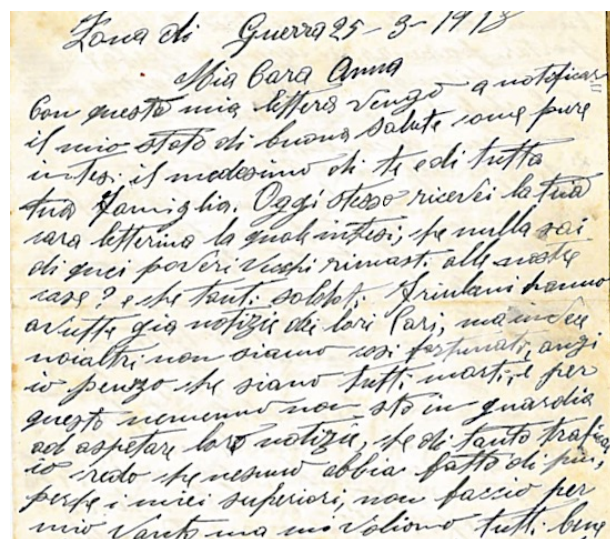 Zona di Guerra 25-3-1918
Mia Cara Anna
Con questa mia lettera vengo a notificar
il mio stato di buona salute come pure
intesi il medesimo di te e di tutta
tua Famiglia. Oggi stesso ricevei la tua
cara letterina la quale intesi, che nulla sai
di quei poveri vecchi rimasti alle nostre
case? e che tanti soldati Friulani hanno
avutte già notizie dei lori Cari, ma invece
noialtri non siamo così fortunati, anzi
io penzo che siano tutti morti, e per
questo nemenno non sto in guardia
ad aspetare loro notizie, che di tanto
io credo che nesuno abbia fatto di più,
perche i miei superiori, non faccio per
mio vanto ma mi voliono tutti bene